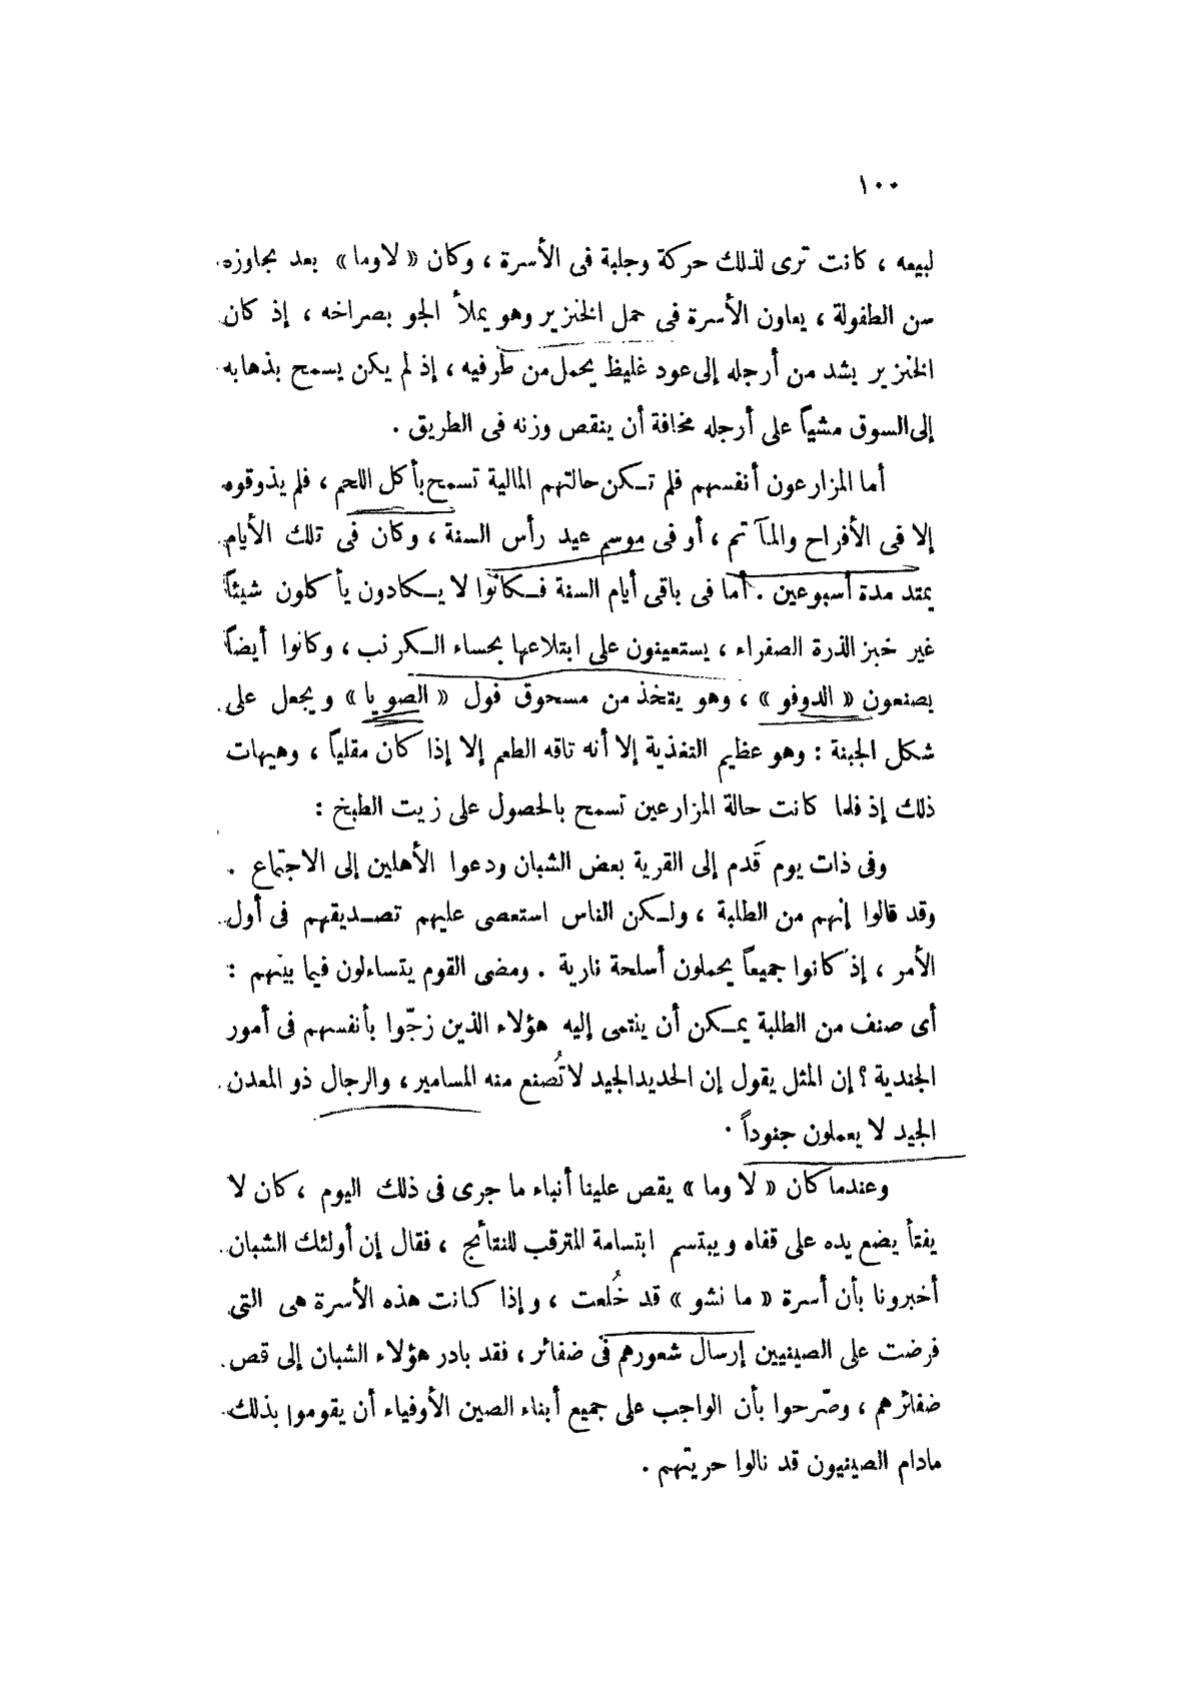 ١٠٠
لبيعه ، كانت ترى لذلك حركة وجلبة فى الأسرة ، وكان « لاوما » بعد مجاوزه
سن الطفولة ، يعاون الأسرة فى حمل الخنزير وهو يملأ الجو بصراخه ، إذ كان
الخنزير يشد من أرجله إلى عود غليظ يحمل من طرفيه ، إذ لم يكن يسمح بذهابه
إلى السوق مشياً على أرجله مخافة أن ينقص وزنه فى الطريق .
أما المزارعون أنفسهم فلم تكن حالتهم المالية تسمح بأكل اللحم ، فلم يذوقوه
إلا فى الأفراح والمآتم ، أو فى موسم عيد رأس السنة ، وكان فى تلك الأيام
يمتد مدة أسبوعين . أما فى باقى أيام السنة فكانوا لا يكادون يأكلون شيئاً
غير خبز الذرة الصفراء ، يستعينون على ابتلاعها بحساء الكرنب ، وكانوا أيضاً
يصنعون « الدوفو » ، وهو يتخذ من مسحوق فول « الصويا » ويجعل على
شكل الجبنة : وهو عظيم التغذية إلا أنه تافه الطعم إلا إذا كان مقلياً ، وهيهات
ذلك إذ قلما كانت حالة المزارعين تسمح بالحصول على زيت الطبخ :
وفى ذات يوم قَدم إلى القرية بعض الشبان ودعوا الأهلين إلى الاجتماع .
وقد قالوا إنهم من الطلبة ، ولكن الناس استعصى عليهم تصديقهم فى أول
الأمر ، إذ كانوا جميعاً يحملون أسلحة نارية . ومضى القوم يتساءلون فيما بينهم :
أى صنف من الطلبة يمكن أن ينتمى إليه هؤلاء الذين زجّوا بأنفسهم فى أمور
الجندية ؟ إن المثل يقول إن الحديد الجيد لا تُصنع منه المسامير ، والرجال ذو المعدن
الجيد لا يعملون جنوداً .
وعندما كان « لا وما » يقص علينا أنباء ما جرى فى ذلك اليوم ، كان لا
يفتأ يضع يده على قفاه ويبتسم ابتسامة المترقب للنتائج ، فقال إن أولئك الشبان
أخبرونا بأن أسرة « ما نشو » قد خُلعت ، وإذا كانت هذه الأسرة هى التى
فرضت على الصينيين إرسال شعورهم فى ضفائر ، فقد بادر هؤلاء الشبان إلى قص
ضفائرهم ، وصّرحوا بأن الواجب على جميع أبناء الصين الأوفياء أن يقوموا بذلك
مادام الصينيون قد نالوا حريتهم .